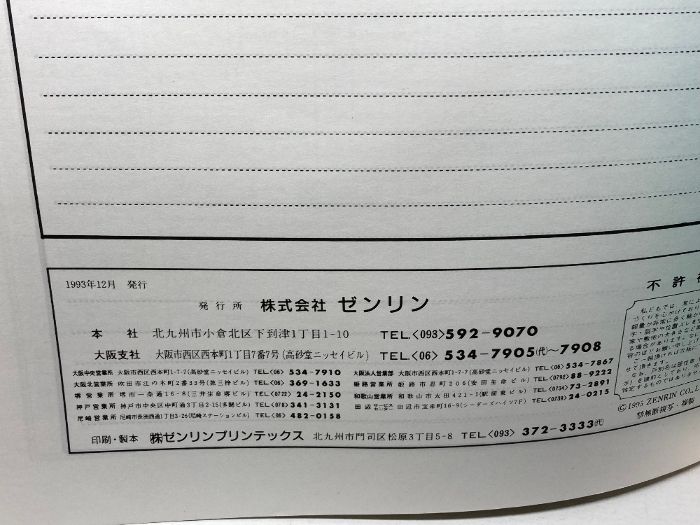 1993年12月 発行
発行所 株式会社 ゼンリン
本社 北九州市小倉北区下到津1丁目1-10 TEL〈093〉592-9070
大阪支社 大阪市西区西本町1丁目7番7号(高砂堂ニッセイビル) TEL〈06〉534-7905(代)〜7908
大阪中央営業所 大阪市西区西本町1-7-7(高砂堂ニッセイビル) TEL〈06〉534-7910
大阪法人営業部 大阪市西区西本町1-7-7(高砂堂ニッセイビル) TEL〈06〉534-7867
大阪北営業所 吹田市江の木町2番33号(第三柿ビル) TEL〈06〉369-1633
姫路営業所 姫路市忍町206(安田生命ビル) TEL〈0792〉88-9222
堺営業所 堺市一条通16-8(三井生命堺ビル) TEL〈0722〉24-2150
和歌山営業所 和歌山市太田421-1(駅前東ビル) TEL〈0734〉73-2891
神戸営業所 神戸市中央区中町通3丁目2-15(本間ビル) TEL〈078〉341-3131
田辺 田辺市宝来町16-9(シーダーズハイツ7F) TEL〈0739〉24-0215
尼崎営業所 尼崎市長洲西通1丁目3-26(尼崎ステーションビル) TEL〈06〉482-0158
印刷・製本 ㈱ゼンリンプリンテックス 北九州市門司区松原3丁目5-8 TEL〈093〉372-3333㈹
不許複
©1995 ZENRIN CO.,